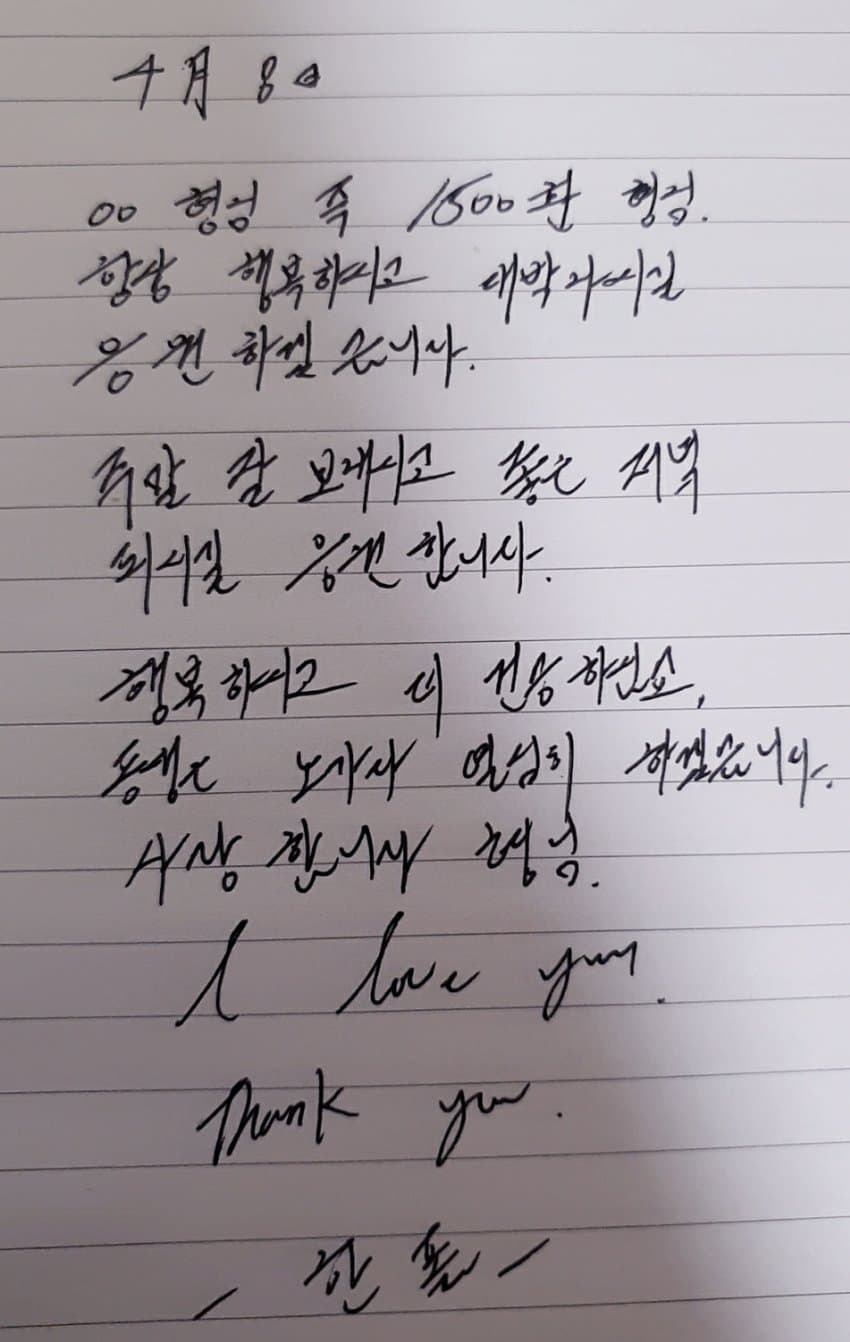 4月 8日
00 형님 즉 1500한 형님.
항상 행복하시고 대박나시길
응원하겠습니다.
주말 잘 보내시고 좋은 저녁
되시길 응원합니다.
행복하시고 더 건승하십쇼,
동생도 노가다 열심히 하겠습니다.
사랑합니다 형님.
I love you.
Thank you.